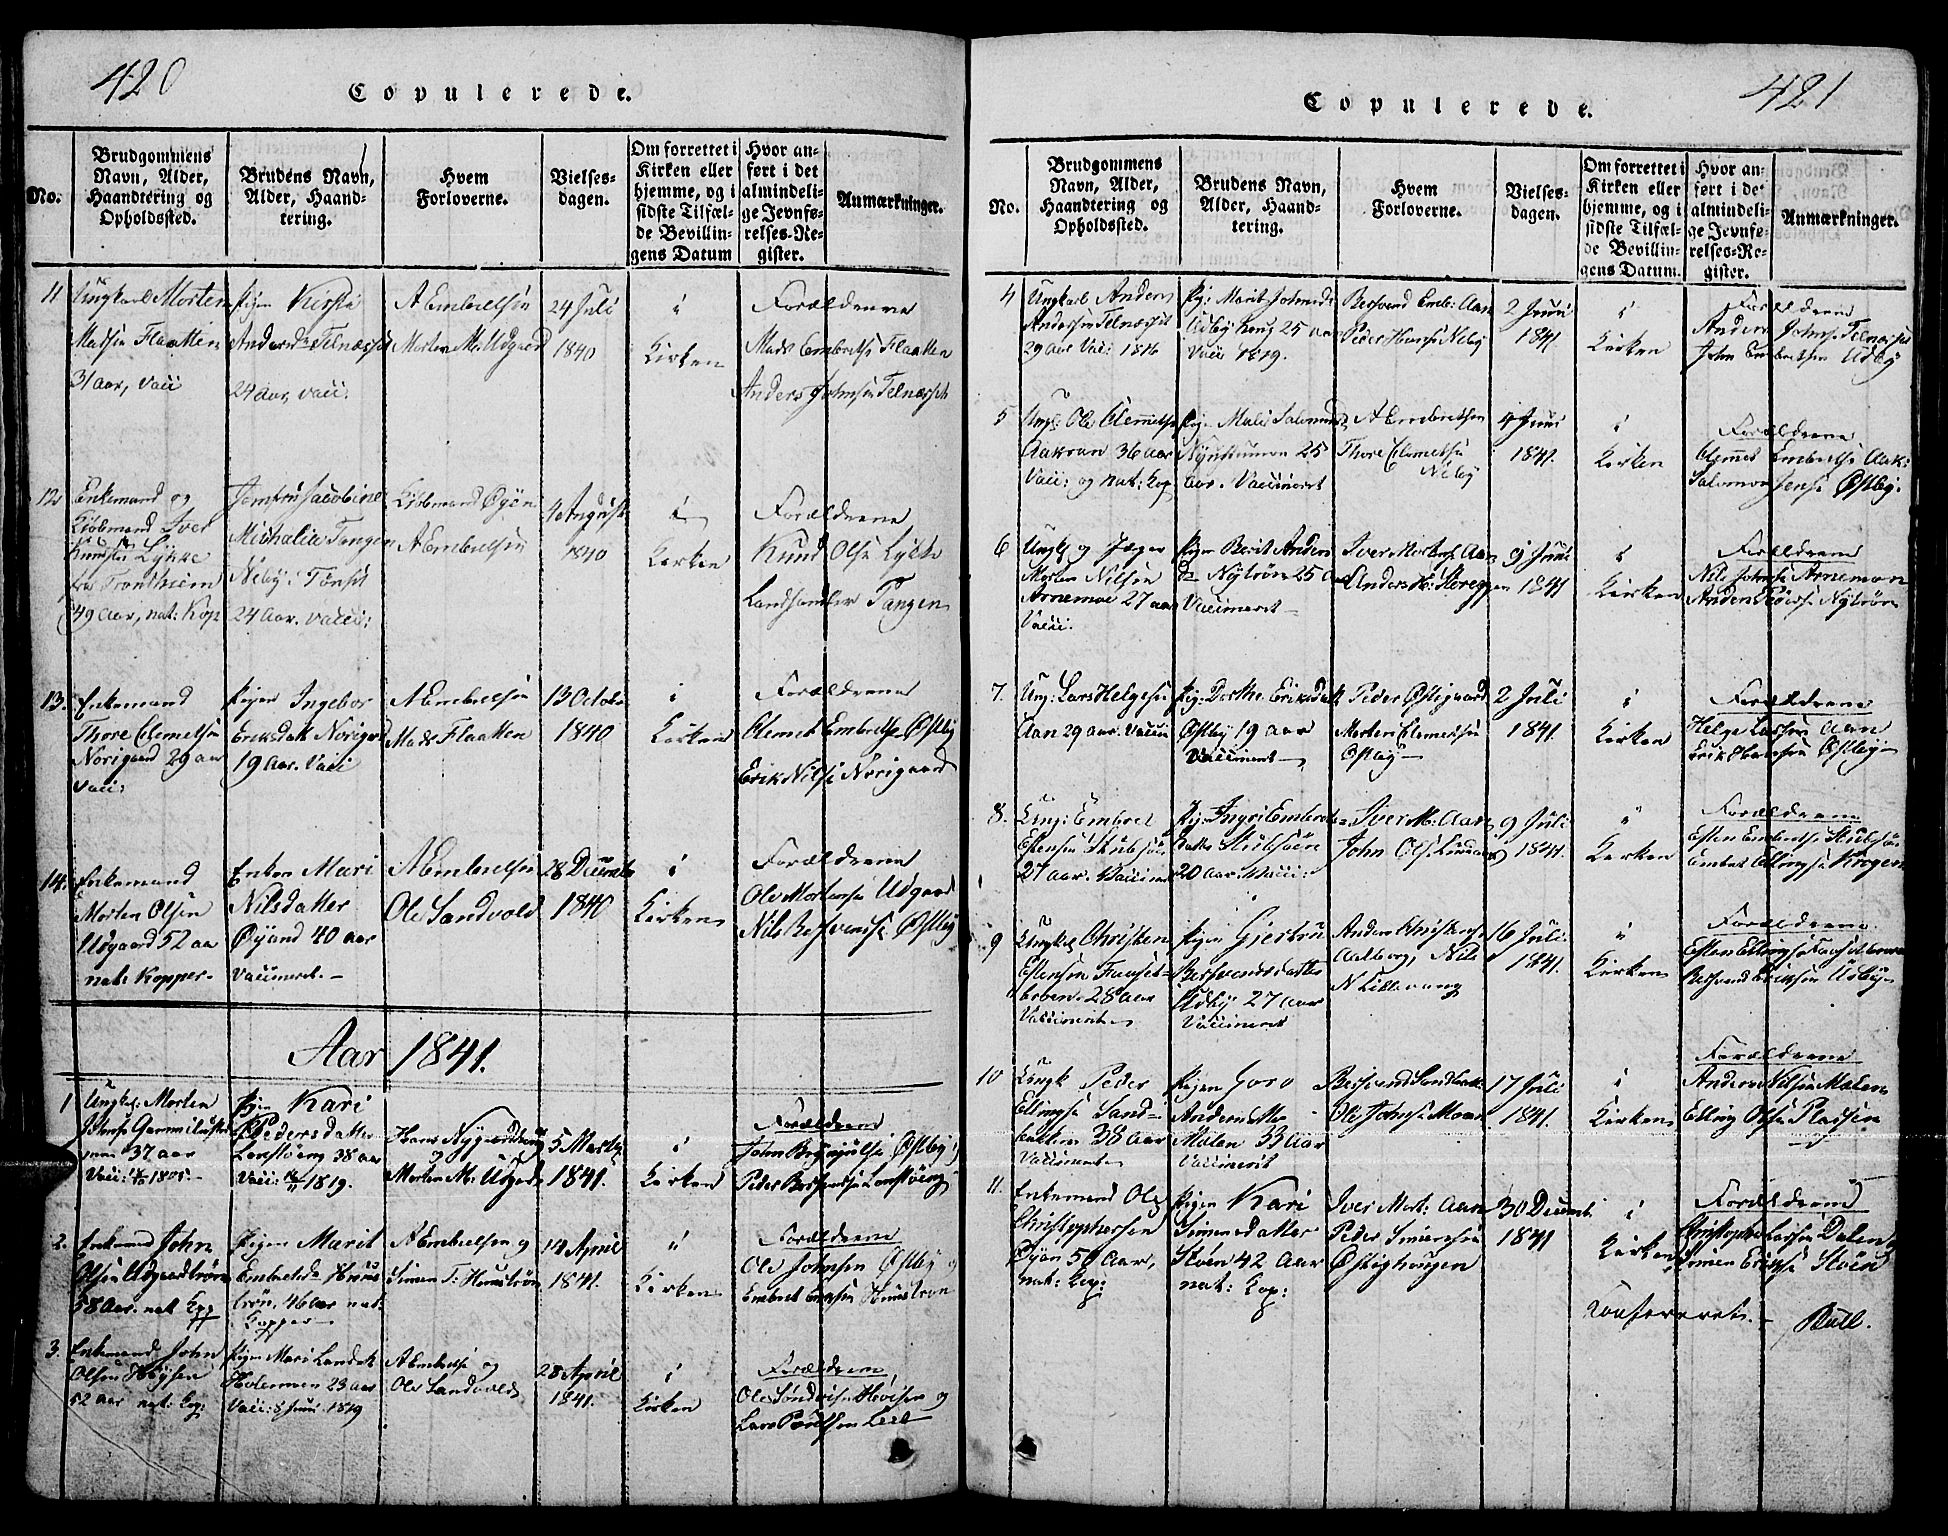 420
Copulerede.
No.
Brudgommens Navn, Alder, Haandtering og Opholdssted.
Brudens Navn, Alder, Haandtering.
Hvem Forloverne.
Vielsesdagen.
Om forrettet i Kirken eller hjemme, og i sidste Tilfælde Bevillingens Datum
Hvor anført i det almindelige Jevnførelses-Register.
Anmærkninger.
11
Ungkarl Morten
Madsen Flaatten
31 aar, vacc
Pigen Kirsti
Andersdr Telnæsset
24 aar, vacc:
A Embretsen
Morten M: Udgard
24 Juli
1840
i
Kirken
Forældrene
Mads Embretse Flaatten
Anders Johnsen Telnæsset
12
Enkemand og
Kjøbmand Iver
Knudsen Lykke
fra Trondhiem
49 aar, nat: Kop
Jomfru Jacobine
Michaline Tangen
Neby i Tønset
24 aar. vacci:
Kjøbmand Øyen
A Embretsen
4 August
1840
i
Kirken
Forældrene
Knud Olse Lykke
Landhandler Tangen
13.
Enkemand
Thore Clemetsen
Norigaard 29 aar
vacc:
Pigen Ingebor
Eriksdatt Norigrd
19 Aar. Vacci
A Embretsen
Mads Flaatten
13 Octobr
1840
i
Kirken
Forældrene
Clemet Embretse Østby
Erik Nilse Norigaard
14.
Enkemand
Morten Olsen
Udgaard 52 aar
nat: Kopper.
Enken Mari
Nilsdatter
Øyand 40 aar
vaccineret. —
A Embretsen
Ole Sandvold
28 Decembr
1840
i
Kirken
Forældrene
Ole Mortense Udgaard
Nils Besvendse Østby
Aar 1841.
1
Ungkarl Morten
37 aar
Pigen Kari
Pedersdatter
Lonstøeng 38 aar
1819.
Hans Nygaard
og
Morten M: Udgrd
5 Marts
1841.
i
Kirken
Forældrene
John Brynjulse Østby
Peder Besvendse Lonstøeng
2.
Enkemand John
Olsen Udgaardtrøen
58 Aar. nat Kop
Pigen Marit
Embretsdr Huus
trøn. 46 aar nat:
Kopper —
A Embretsen og
Simen T: Huustrøn
14 April
1841.
"
Kirken
Forældrene
Ole Johnsen Østby og
Embret Huustrøn
3.
Enkemand John
Olsen Høysen
52 aar nat: Kop:
Pigen Mari Larsdtr
Holermoen 23 aar
Vacc: Juni 1819
A Embretse og
Ole Sandvold
28 April
1841.
i
Kirken
Forældrene
Ole Høisen og
421
Copulerede.
No.
Brudgommens Navn, Alder, Haandtering og Opholdssted.
Brudens Navn, Alder, Haandtering.
Hvem Forloverne.
Vielsesdagen.
Om forrettet i Kirken eller hjemme, og i sidste Tilfælde Bevillingens Datum.
Hvor anført i det almindelige Jevnførelses-Register.
Anmærkninger.
4
Ungkarl Anders
Andersen Telnæsset
29 aar Vacc: 1816
Pig: Marit Johnsdr
Udby 25 aar
Vacc 1819.
Besvend Emb: Aan
Peder Hansse Neby
2 Juni
1841
i
Kirken
Forældrene
Anders Johnse Telnæsset
John Embretsen Udby
5
Ungk: Ole Clemetse
Aakran 36 aar
Vacc: og nat: Kop
Pig: Malie Salomonsd
25
aar. Vaccineret
A Embretsen
Thore Clemetse
Neby
4 Juni
1841.
i
Kirken
Forældrene
Clemet Embretse Aak:
Salomon Jense Østby.
6
Ungk og Jæger
Morten Nilsen
Arnemoe 27 aar
Vacci.
Pigen Berit Anders
dr Nytrøn 25 aar
Vaccineret —
Iver Mortens Aan
Anders H: Storeggen
9 Juni
1841
i
Kirken
Forældrene
Nils Johnse Arnemoen
Anders Peders: Nytrøn
7.
Ung: Lars Helgesen
Aan 29 aar. Vaccin
Pig: Dorthe Eriksdatt
Østby 19 aar
Vaccineret —
Peder Østigaard
Morten Clemetsen
Østby —
2 Juli
1841.
i
Kirken
Forældrene
Helge Larsen Aan
Erik Hansen Østby —
8.
Ung: Embret
Estensen Stubsøen
27 aar. Vaccineret
Pig: Ingri Embrets
datter Stubsøen
20 aar. Vacci:
Iver M: Aan
John Olse
9 Juli
1841.
"
Kirken
Forældrene
Esten Embretse Stubsøen
Embret Ellingse Krogen
9
Ungkarl Christen
Estensen Fauset-
broen. 28 aar
Vaccineret —
Pigen Gjertru
Besvendsdatter
Udby 27 aar
Vaccineret
Anders Christophs
Aalborg, Nils
N Lillevang
16 Juli
1841.
"
Kirken
Forældrene
Esten Ellingse Fausetbroen
Besvend Eriksen Udby —
10
Ungk Peder
Ellingse Sand-
bakken 38 aar
Vaccineret —
Pigen Goro
Anders
Moen 33 aar
Vaccineret
Besvend Sandbakk
Ole Johnse Moan
17 Juli
1841.
i
Kirken
Forældrene
Anders Nilsen Moen
Elling Olse Pladsen
11.
Enkemand Ole
Christophersen
Øyan 50 aar,
nat: Kop:
Pigen Kari
Simensdatter
Støen 42 aar
nat: Kop:
Iver Mort: Aan
Peder Simensen
Østighaugen
30 Decembr
1841
i
Kirken
Forældrene
Christopher Larsen Dalen
Simen Erikse Støen
Confereret. —
Bull.